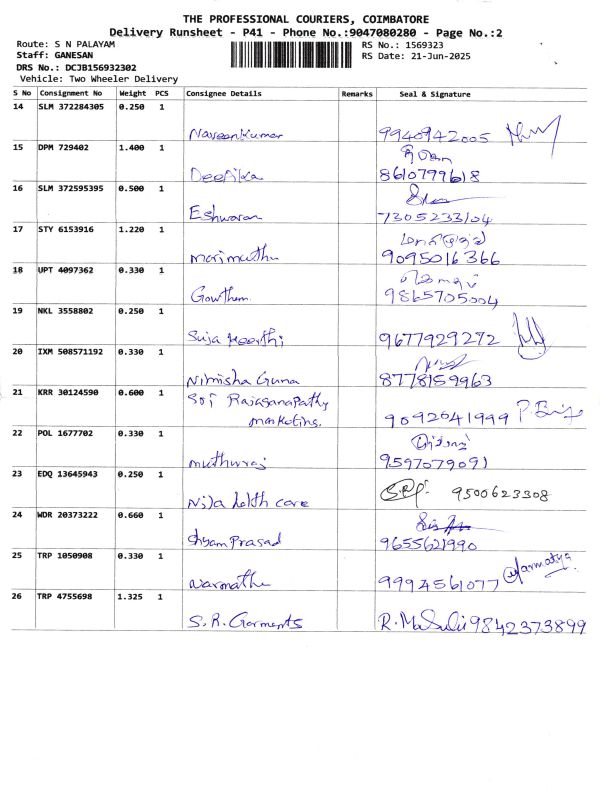 THE PROFESSIONAL COURIERS, COIMBATORE
Delivery Runsheet - P41 - Phone No.:9047080280 - Page No.:2
Route: S N PALAYAM
RS No.: 1569323
Staff: GANESAN
RS Date: 21-Jun-2025
DRS No.: DCJB156932302
Vehicle: Two Wheeler Delivery
S No Consignment No Weight PCS Consignee Details Remarks Seal & Signature
14 SLM 372284305 0.250 1
Naveenkumar 9940942005
15 DPM 729402 1.400 1
Deepika 8610799618
16 SLM 372595395 0.500 1
Eshwaran 7305233104
17 STY 6153916 1.220 1
marimuthu 9095016366
18 UPT 4097362 0.330 1
Gowtham 9865705004
19 NKL 3558802 0.250 1
Suja keerthi 9677929272
20 IXM 508571192 0.330 1
Nimisha Guna 8778159963
21 KRR 30124590 0.600 1
Sri Rajaganapathy
marketing. 9092041999
22 POL 1677702 0.330 1
muthuraj 9597079091
23 EDQ 13645943 0.250 1
Nila helth care 9500623308
24 WDR 20373222 0.660 1
Shyam Prasad 9655621990
25 TRP 1050908 0.330 1
Narmatha 9994561077
26 TRP 4755698 1.325 1
S.R. Garments 9842373899